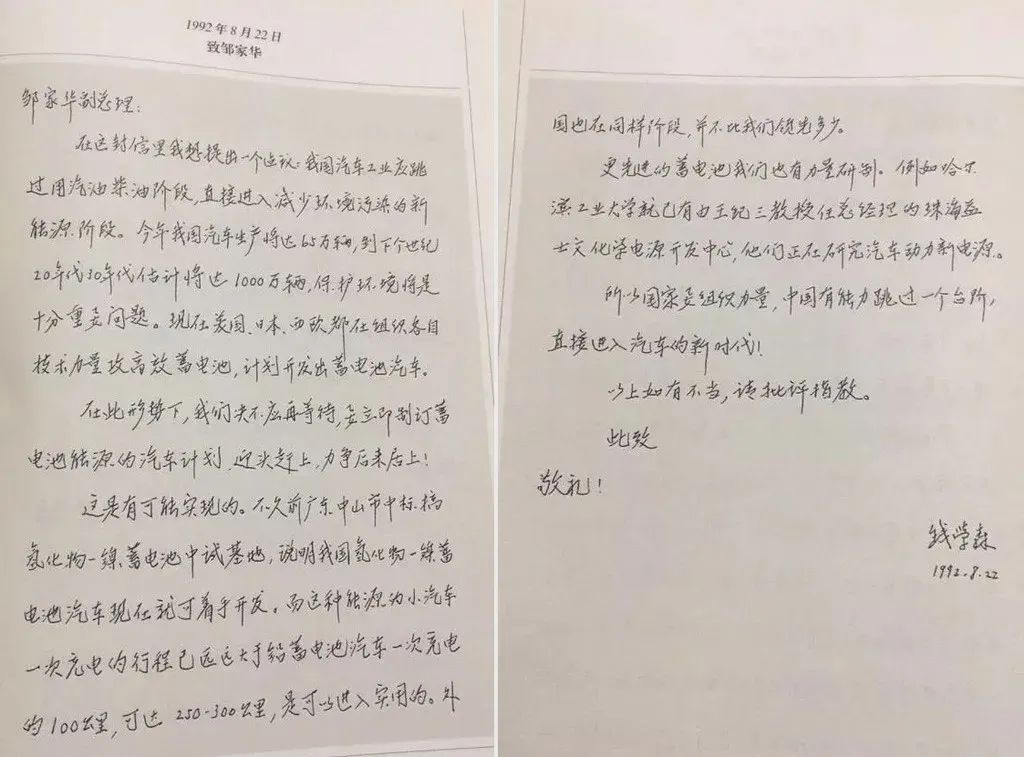 1992年8月22日
致邹家华
邹家华副总理：
在这封信里我想提出一个建议：我国汽车工业应跳
过用汽油柴油阶段，直接进入减少环境污染的新
能源阶段。今年我国汽车生产将达65万辆，到下个世纪
20年代30年代估计将达1000万辆，保护环境将是
十分重要问题。现在美国、日本、西欧都在组织各自
技术力量攻高效蓄电池，计划开发出蓄电池汽车。
在此形势下，我们决不应再等待，要立即制订蓄
电池能源的汽车计划，迎头赶上，力争后来居上！
这是有可能实现的。不久前广东中山市中标搞
氢化物—镍蓄电池中试基地，说明我国氢化物—镍蓄
电池汽车现在就可着手开发。而这种能源为小汽车
一次充电的行程已远远大于铅蓄电池汽车一次充电
的100公里，可达250-300公里，是可以进入实用的。外
国也在同样阶段，并不比我们领先多少。
更先进的蓄电池我们也有力量研制。例如哈尔
滨工业大学就已有由王纪三教授任总经理的珠海益
士文化学电源开发中心，他们正在研究汽车动力新电源。
所以国家要组织力量，中国有能力跳过一个台阶，
直接进入汽车的新时代！
以上如有不当，请批评指教。
此致
敬礼！
钱学森
1992.8.22